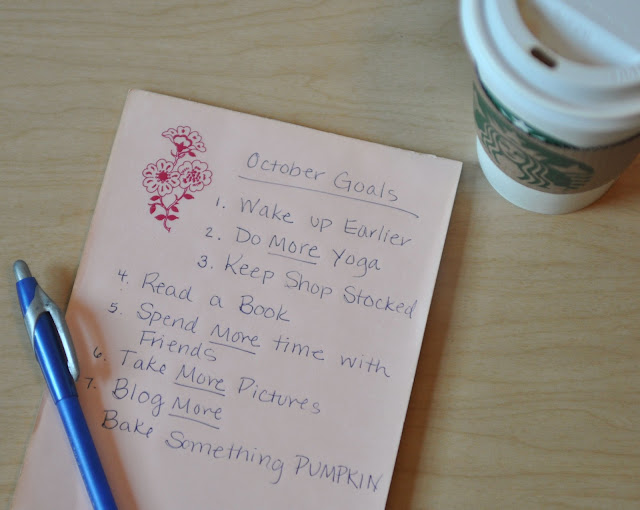 October Goals
1. Wake up Earlier
2. Do More Yoga
3. Keep Shop Stocked
4. Read a Book
5. Spend More time with
Friends
6. Take More Pictures
7. Blog More
Bake Something PUMPKIN